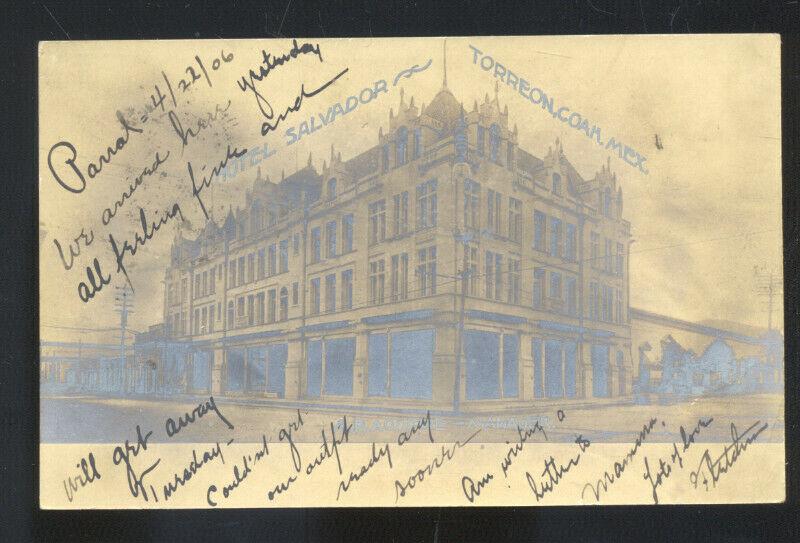 Parral - 4/22/06
We arrived here yesterday
all feeling fine and
HOTEL SALVADOR ~ TORREON, COAH. MEX.
will get away
Tuesday -
Couldn't get
our outfit
ready any
sooner
Am writing a
letter to
Mamma.
Lots of love
Fletcher
MANAGER